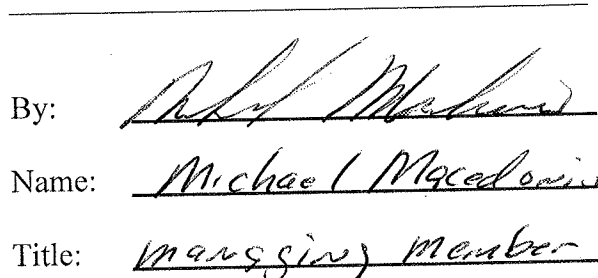 By:
Name: Michael Macedonia
Title: managing member